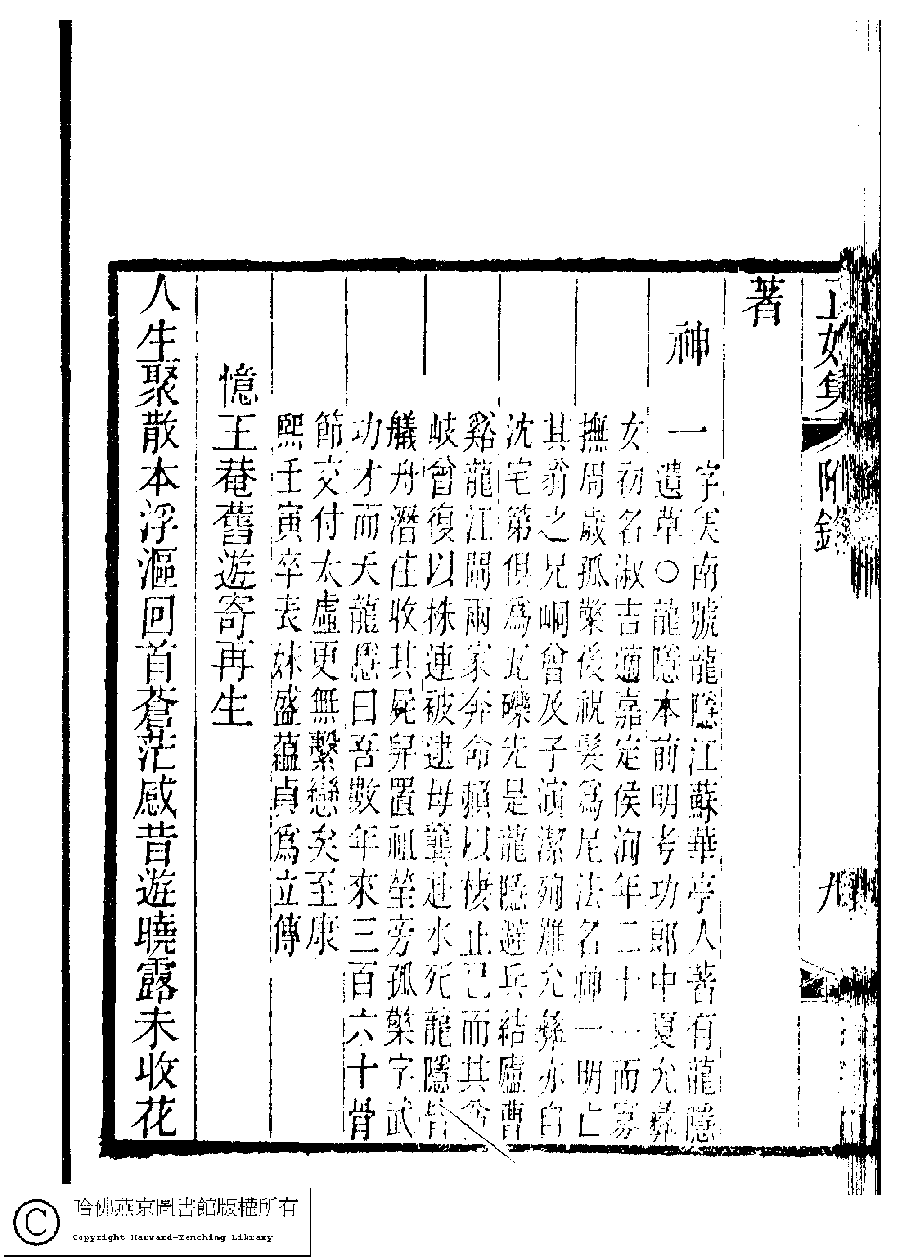 集 附錄 九
著
神一
字美南號龍隱江蘇華亭人著有龍隱
遺草○龍隱本前明考功郎中夏允彝
女初名淑吉適嘉定侯洵年二十一而寡
撫周歲孤檠後祝髮爲尼法名神一明亡
其翁之兄峒曾及子演潔殉難允彝亦自
沈宅第俱爲瓦礫先是龍隱避兵結廬曹
谿龍江關兩家奔命賴以棲止已而其翁
岐曾復以株連被逮母龔赴水死龍隱皆
艤舟潛往收其屍舁置祖塋旁孤檠字武
功才而夭龍隱曰吾數年來三百六十骨
節交付太虛更無繫戀矣至康
熙壬寅卒表妹盛蘊貞爲立傳
憶王菴舊遊寄再生
人生聚散本浮漚回首蒼茫感昔遊曉露未收花
哈佛燕京圖書館版權所有
Copyright Harvard-Yenching Library